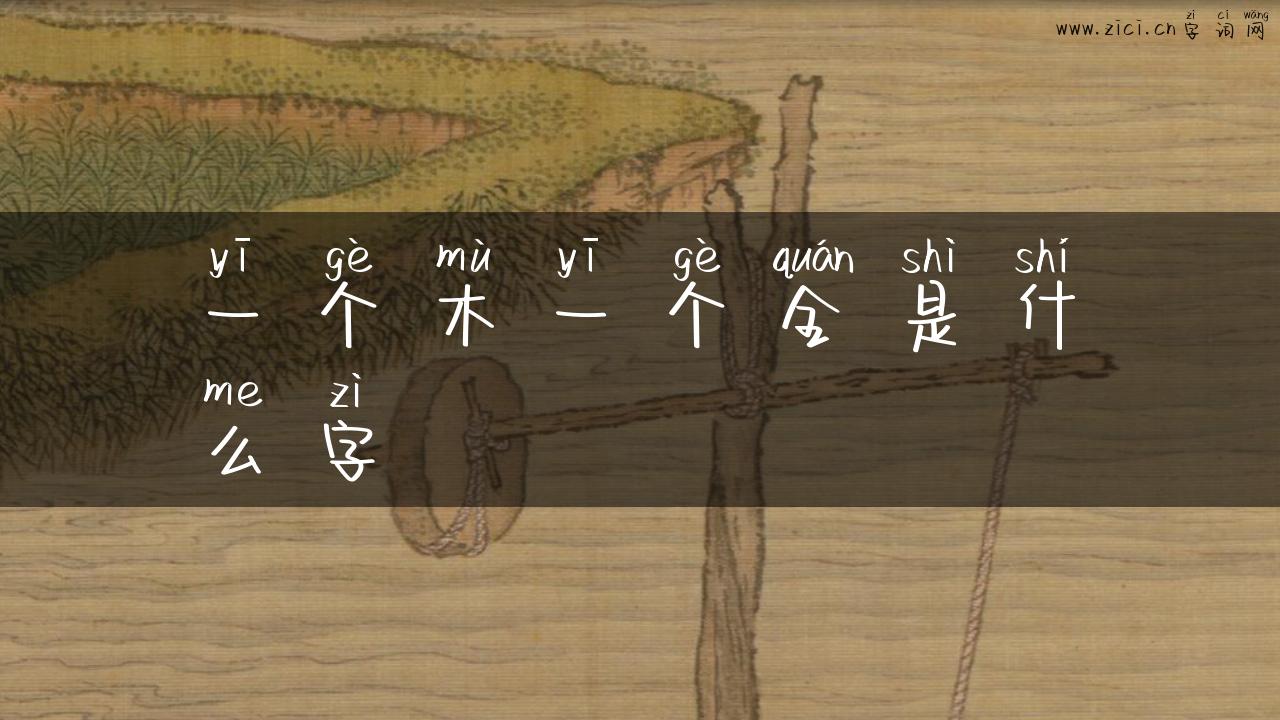 zì cí wǎng
www.zici.cn 字词网
yī gè mù yī gè quán shì shí
一个木一个全是什
me zì
么字